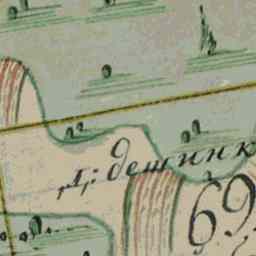 д: дешинк
69